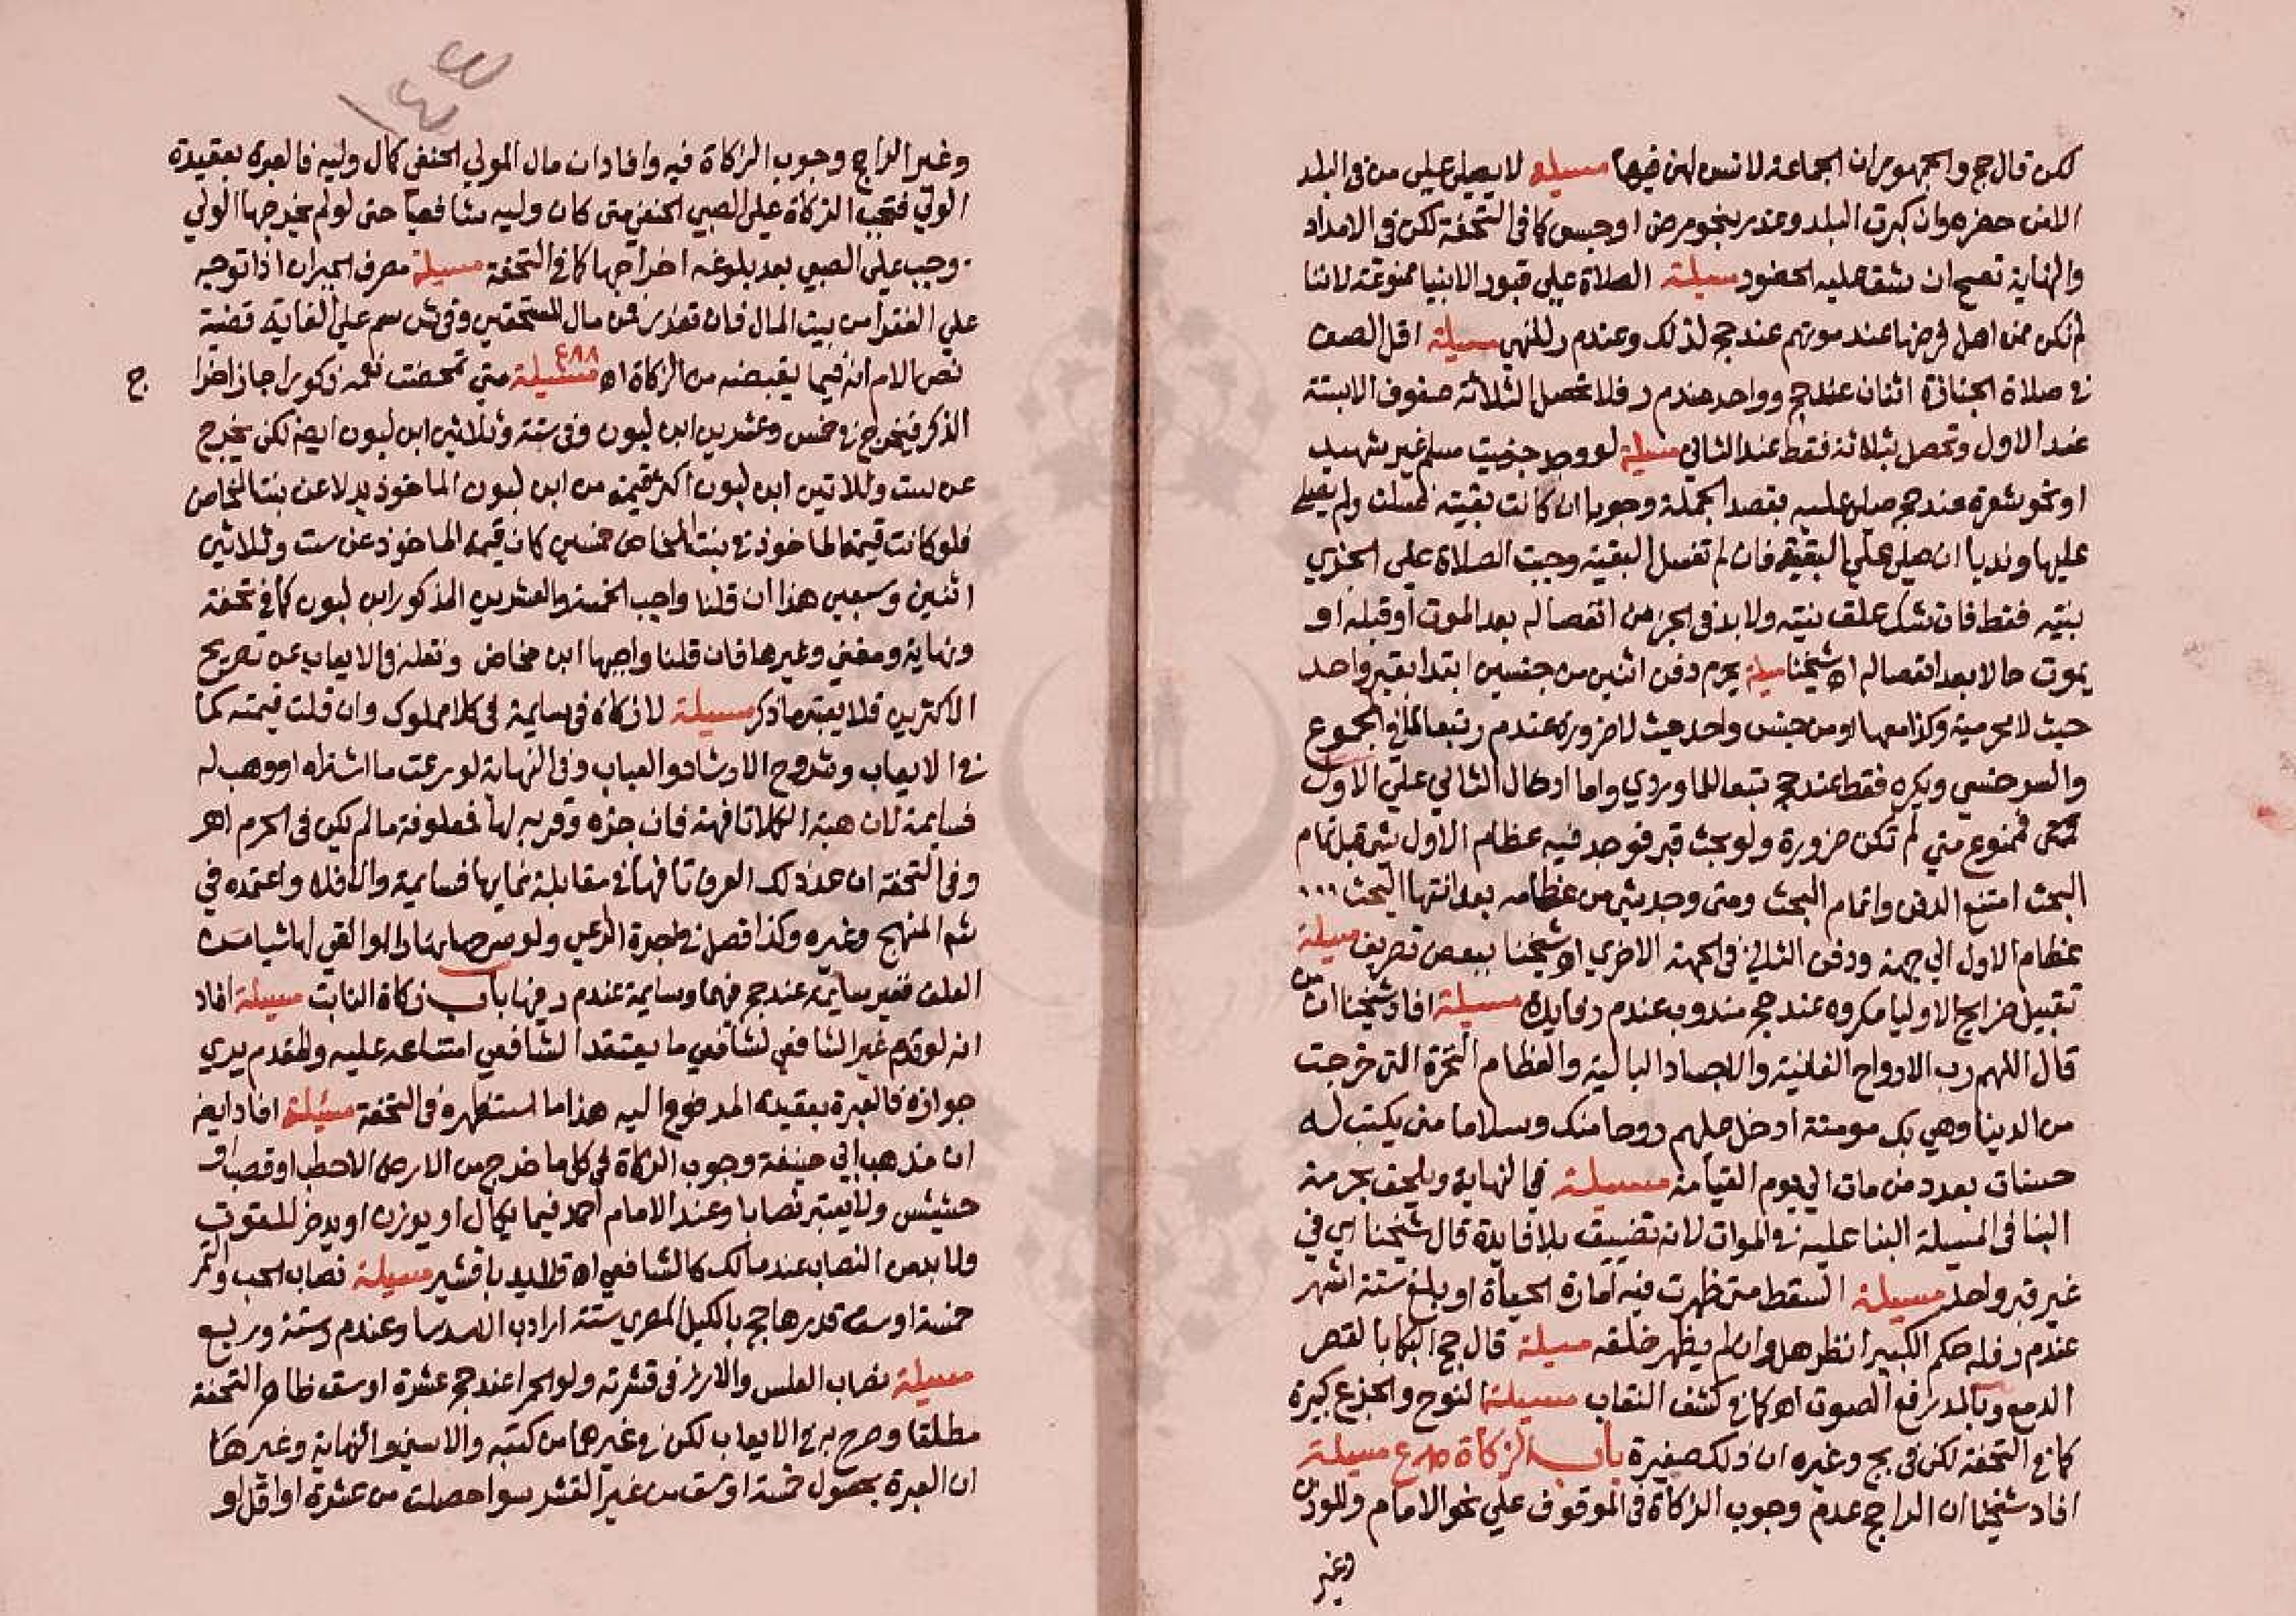 لكن قال حج والجمهور ان الجماعة لا تسن لهن فيها مسيلة لا يصلي علي من في البلد
الا من حضره وان كبرت البلد وعذر بنحو مرض او حبس كما في التحفة لكن في الامداد
والنهاية تصح ان شق عليه الحضور مسيلة الصلاة علي قبور الانبيا ممنوعة لاننا
لم نكن من اهل فرضها عند موتهم عند حج لذلك وعند م ر للنهي مسيلة اقل الصف
في صلاة الجنازة اثنان عند حج وواحد عند م ر فلا تحصل الثلاثة صفوف الا بستة
عند الاول وتحصل بثلاثة فقط عند الثاني مسيلة لو وجد جزء ميت مسلم غير شهيد
او نحو شعرة فعند حج صلي عليه بقصد الجملة وجوبا ان كانت بقيته غسلت ولم يصل
عليها وندبا ان صلي علي البقية فان لم تغسل البقية وجبت الصلاة علي الجزء
بنيته فقط فان شك علق بنيته ولا بد في الجزء من انفصاله بعد الموت او قبله او
يموت حالا بعد انفصاله اه شيخنا مسيلة يحرم دفن اثنين من جنسين ابتدا بقبر واحد
حيث لا محرمية وكذا معها او من جنس واحد حيث لا ضرورة عند م ر تبعا لما في المجموع
والسرخسي ويكره فقط عند حج تبعا للماوردي واما ادخال الثاني علي الاول
فممنوع متي لم تكن ضرورة ولو بحث قبر فوجد فيه عظام الاول شي قبل تمام
البحث امتنع الدفن واتمام البحث ومتي وجد شي من عظامه بعد انتها البحث
عظام الاول الي جهة ودفن الثاني في الجهة الاخري اه شيخنا ببعض تصرف مسيلة
تقبيل ضرايح الاوليا مكروه عند حج مندوب عند م ر فايدة مسيلة افاد شيخنا ان من
قال اللهم رب الارواح الفانية والاجساد البالية والعظام النخرة التي خرجت
من الدنيا وهي بك مومنة ادخل عليهم روحا منك وسلاما مني يكتب له
حسنات بعدد من مات الي يوم القيامة مسيلة في النهاية ويلحق بحرمة
البنا في المسيلة البنا عليه في الموات لانه تضييق بلا فايدة قال شيخنا اي في
غير قبر واحد مسيلة السقط متي ظهرت فيه امارة الحياة او بلغ ستة اشهر
عند م ر فله حكم الكبير انظر هل وان لم يظهر خلقه مسيلة قال حج البكا بالقصر
الدمع وبالمد رفع الصوت اه كما في كشف النقاب مسيلة النوح والجزع كبيرة
كما في التحفة لكن في حج وغيره ان ذلك صغيرة باب الزكاة مسيلة
افاد شيخنا ان الراجح عدم وجوب الزكاة في الموقوف علي نحو الامام والموذن
وغير
وغير الراجح وجوب الزكاة فيه وافاد ان مال المولي الحنفي كمال وليه فالعبرة بعقيدة
الولي فتجب الزكاة علي الصبي الحنفي متي كان وليه شافعيا حتي لو لم يخرجها الولي
وجب علي الصبي بعد بلوغه اخراجها كما في التحفة مسيلة مصرف الجبران اذا توجه
علي الفقرا من بيت المال فان تعذر فمن مال المستحقين وفي سم علي الغاية قضية
نص الام انه فيما يقبضه من الزكاة اه مسيلة متي تمحضت نعمه ذكورا جاز اخراج
الذكر فيخرج في خمس وعشرين ابن لبون وفي ستة وثلاثين ابن لبون ايضا لكن يخرج
عن ست وثلاثين ابن لبون اكثر قيمة من ابن لبون الماخوذ بدلا عن بنت المخاض
فلو كانت قيمة الماخوذ في بنت المخاض خمسين كان قيمة الماخوذ عن ست وثلاثين
اثنين وسبعين هذا ان قلنا واجب الخمسة والعشرين المذكور ابن لبون كما في تحفة
ونهاية ومغني وغيرها فان قلنا واجبها ابن مخاض ونقله في الايعاب عن تصريح
الاكثرين فلا يعتبر ما ذكر مسيلة لا زكاة في سايمة في كلا مملوك وان قلت قيمته كما
في الايعاب وشروح الارشاد والعباب وفي النهاية لو رعت ما اشتراه او وهب له
فسايمة لان هبة الكلا تافهة فان جزه وقربه لها فمعلوفة ما لم يكن في الحرم اهر
وفي التحفة ان عد ذلك العرف تافها في مقابلة نمايها فسايمة والا فلا واعتمده في
شم المنهج وغيره وكذا فصل في اجرة الرعي ولو سرحها نهارا والقي لها شيا من
العلف فغير سايمة عند حج فيهما وسايمة عند م ر فيها باب زكاة النابت مسيلة افاد
انه لو قدم غير الشافعي لشافعي ما يعتقد الشافعي امتناعه عليه والمقدم يري
جوازه فالعبرة بعقيدة المدفوع اليه هذا ما استظهره في التحفة مسئلة افاد ايض
ان مذهب ابي حنيفة وجوب الزكاة في كل ما خرج من الارض الا حطبا او قصبا او
حشيش ولا يعتبر نصابا وعند الامام احمد فيما يكال او يوزن او يدخر للقوت
ولا بد من النصاب عند مالك كالشافعي اه قلايد باقشير مسيلة نصاب الحب والتمر
خمسة اوسق قدرها حج بالكيل المصري ستة ارادب الا سدسا وعند م ر ستة وربع
مسيلة نصاب العلس والارز في قشرته ولو الحمرا عند حج عشرة اوسق ظاهر التحفة
مطلقا وصرح به في الايعاب لكن في غيرهما من كتبه والاسني والنهاية وغيرها
ان العبرة بحصول خمسة اوسق من غير القشر سوا حصلت من عشرة او اقل او